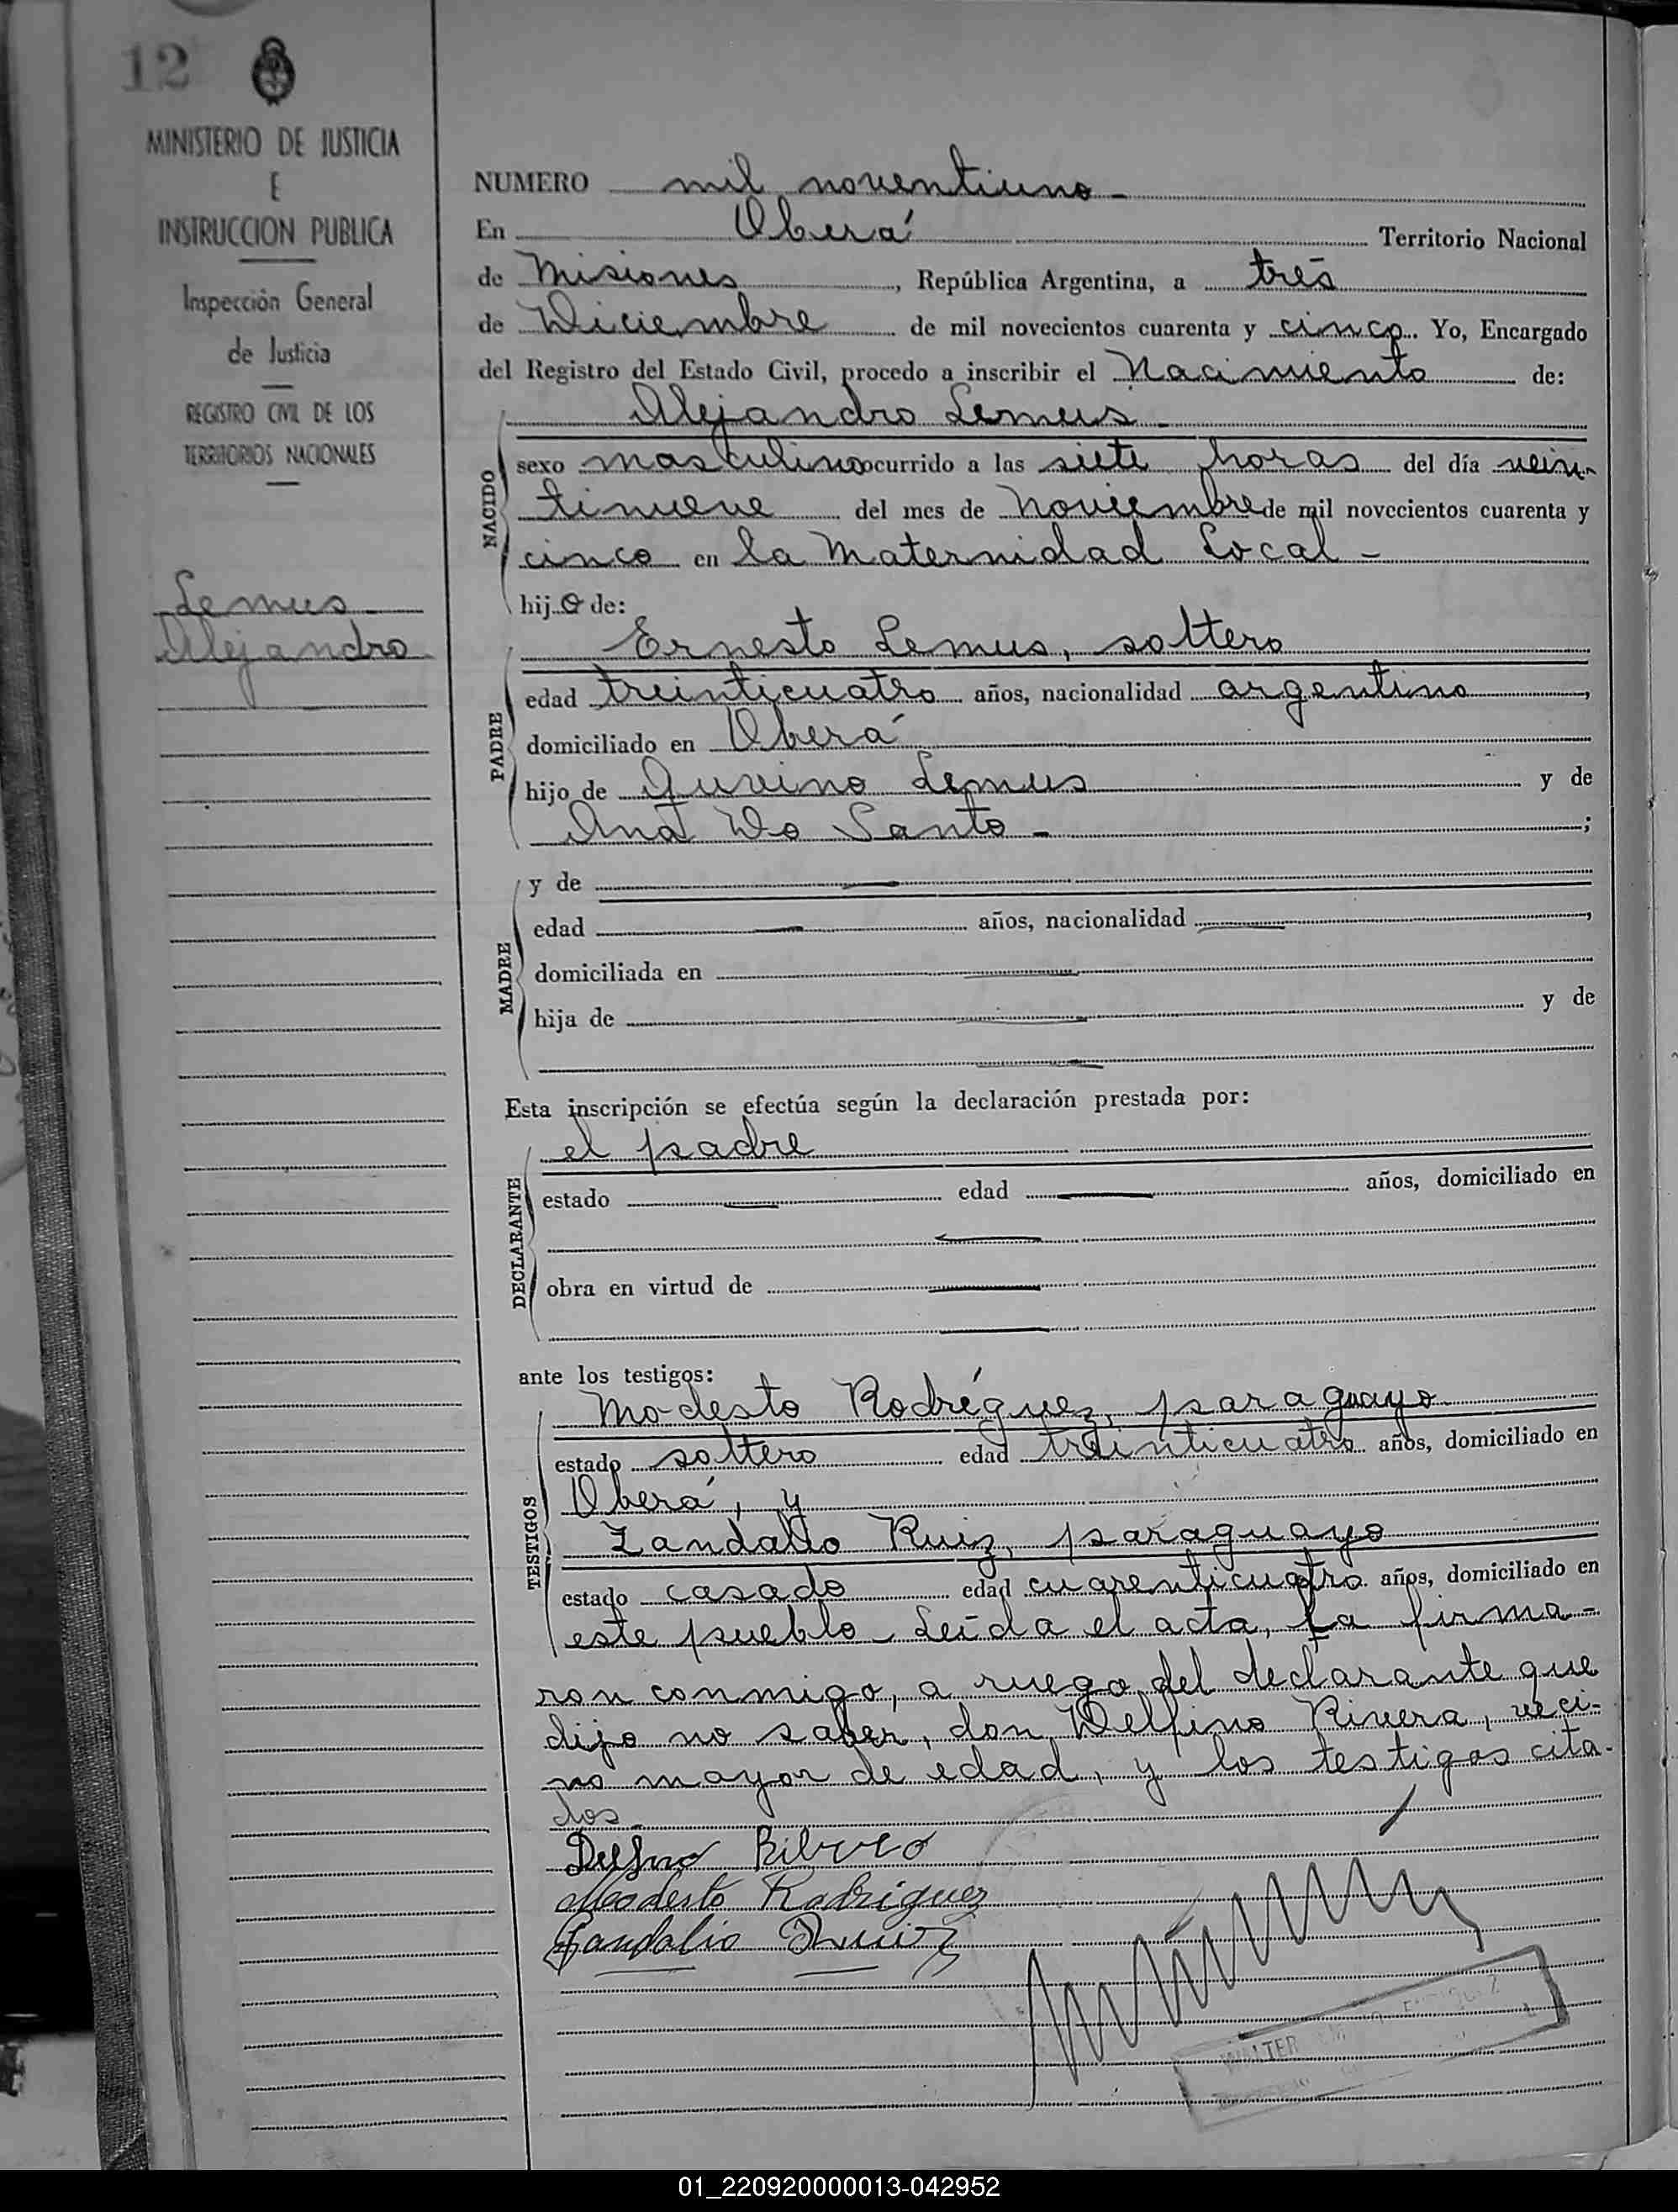 12
MINISTERIO DE JUSTICIA
E
INSTRUCCION PUBLICA
Inspección General
de Justicia
REGISTRO CIVIL DE LOS
TERRITORIOS NACIONALES
Lemus
Alejandro
NUMERO mil noventiuno -
En Oberá Territorio Nacional
de Misiones, República Argentina, a tres
de Diciembre de mil novecientos cuarenta y cinco. Yo, Encargado
del Registro del Estado Civil, procedo a inscribir el Nacimiento de:
Alejandro Lemus -
NACIDO
sexo masculino ocurrido a las siete horas del día vein-
tinueve del mes de Noviembre de mil novecientos cuarenta y
cinco en la Maternidad Local -
hijo de:
PADRE
Ernesto Lemus, soltero
edad treinticuatro años, nacionalidad argentino,
domiciliado en Oberá
hijo de Juvino Lemus y de
Ana Do Santo - ;
MADRE
y de —
edad — años, nacionalidad —,
domiciliada en —
hija de — y de
—
Esta inscripción se efectúa según la declaración prestada por:
DECLARANTE
el padre
estado — edad — años, domiciliado en
—
obra en virtud de —
—
ante los testigos:
TESTIGOS
Modesto Rodríguez, paraguayo
estado soltero edad treinticuatro años, domiciliado en
Oberá, y
Zandalio Ruiz, paraguayo
estado casado edad cuarenticuatro años, domiciliado en
este pueblo - Leída el acta, la firma-
ron conmigo, a ruego del declarante que
dijo no saber, don Delfino Rivera, veci-
no mayor de edad, y los testigos cita-
dos -
Modesto Rodriguez
Gandalio Ruiz
WALTER
01_220920000013-042952